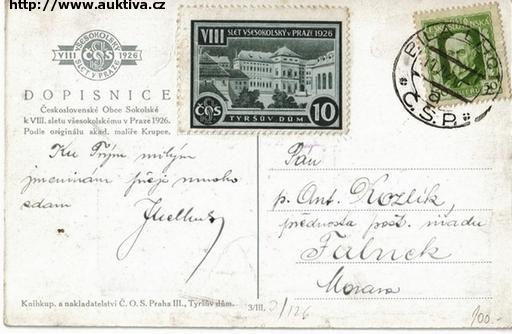 http://www.auktiva.cz
VŠESOKOLSKÝ
VIII ČOS 1926
SLET V PRAZE
DOPISNICE
Československé Obce Sokolské
k VIII. sletu všesokolskému v Praze 1926.
Podle originálu akad. malíře Krupee.
VIII SLET VŠESOKOLSKÝ V PRAZE 1926
ČOS 10
TYRŠŮV DŮM
Č.S.P.
Ku Tvým milým
jmeninám přeji mnoho
zdaru
Pán
p. Ant. Kozlík,
přednosta pošt. úřadu
Fulnek
Morava
Knihkup. a nakladatelství Č. O. S. Praha III., Tyršův dům.
3/III.
100.-